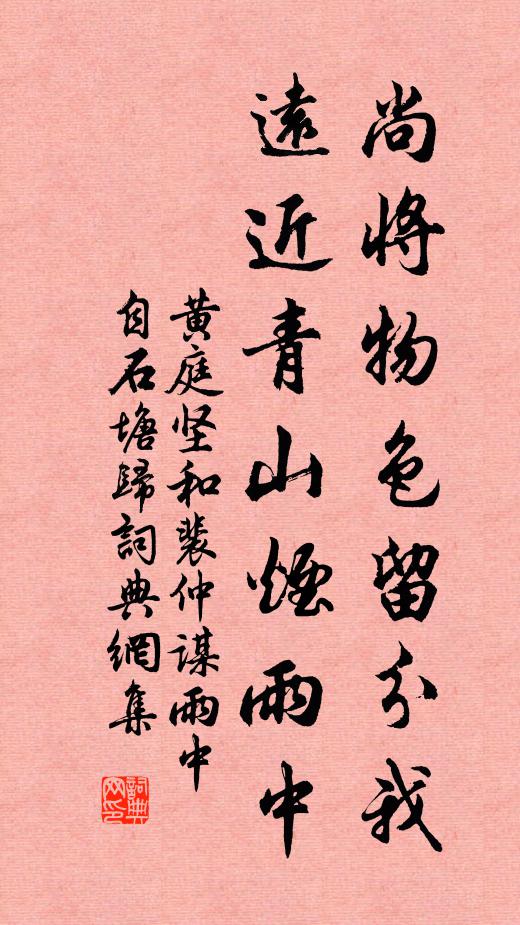 尚將物色留分我
遠近青山煙雨中
黄庭坚和裴仲謀雨中
自石塘歸詞典網集
詞典网印